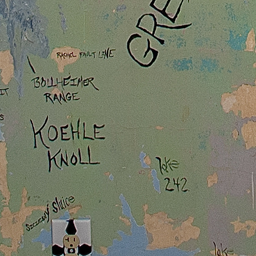 GRE
RACHEL FAULT LINE
BOLLHEIMER
RANGE
IT
KOEHLE
KNOLL
lake
242
Sluice
lake